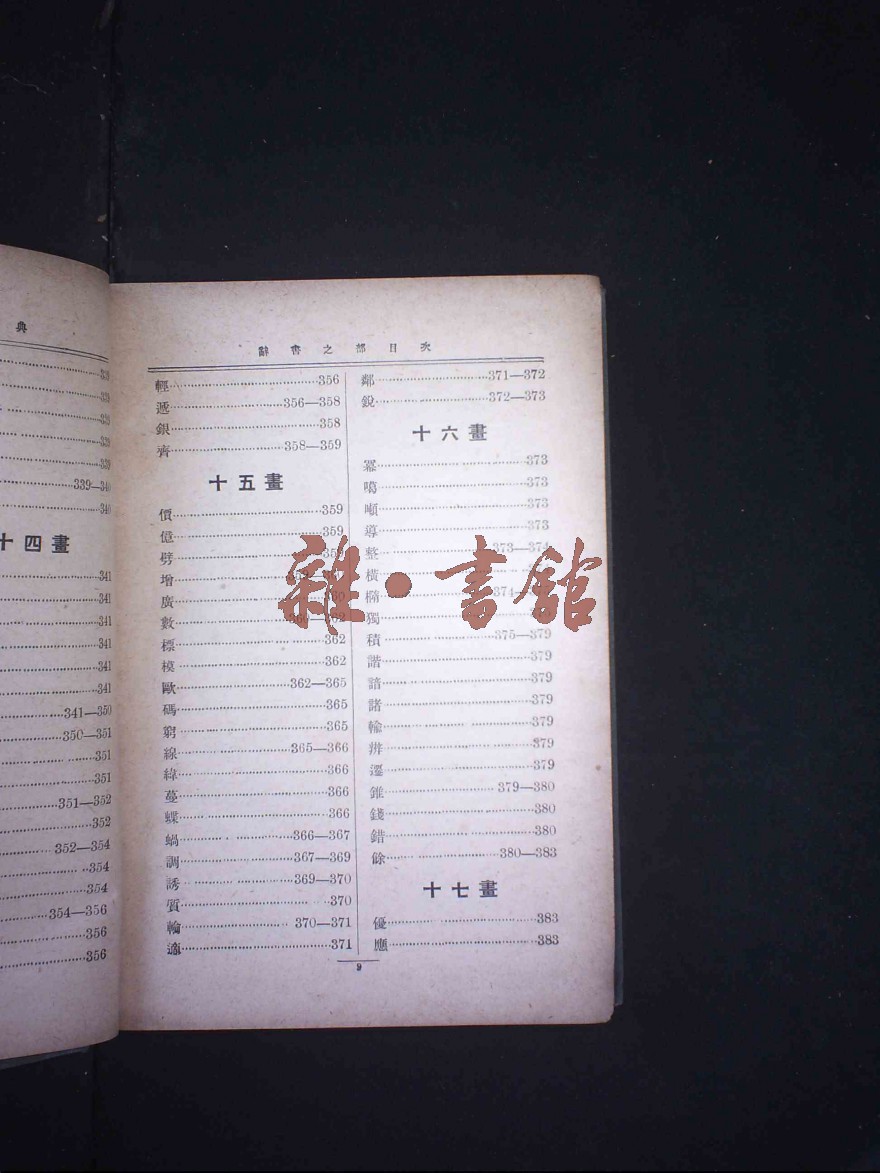 典
339
339
339
339
339
339—340
340
十四畫
341
341
341
341
341
341
341—350
350—351
351
351
351—352
352
352—354
354
354
354—356
356
356
辭書之部目次
輕 356
遞 356—358
銀 358
齊 358—359
十五畫
價 359
億 359
劈 359
增
廣 360
數
標 362
模 362
歐 362—365
碼 365
窮 365
線 365—366
緯 366
蔓 366
蝶 366
蝸 366—367
調 367—369
誘 369—370
質 370
輪 370—371
適 371
鄰 371—372
銳 372—373
十六畫
冪 373
噶 373
噸 373
導 373
整 373—374
橫
橢
獨
積 375—379
諧 379
諳 379
諸 379
輸 379
辨 379
選 379
錐 379—380
錢 380
錯 380
餘 380—383
十七畫
優 383
應 383
9
雜·書館